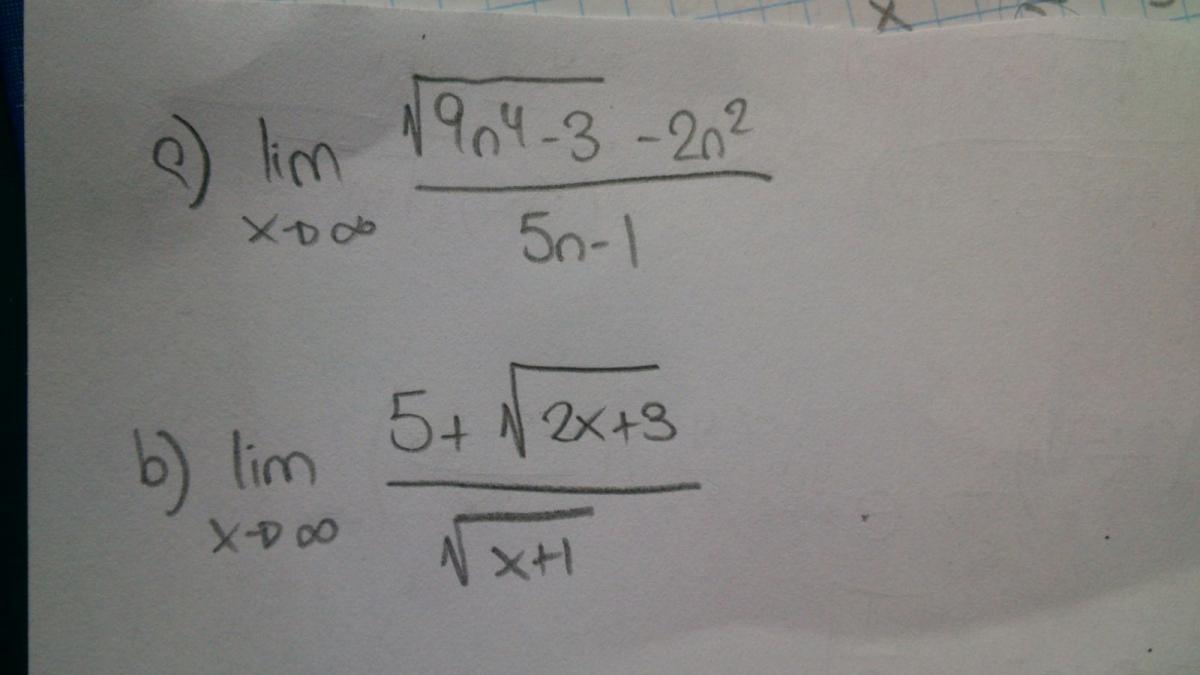 a) lim √(9n⁴-3) -2n²
x→∞ 5n-1
b) lim 5+ √(2x+3)
x→∞ √(x+1)